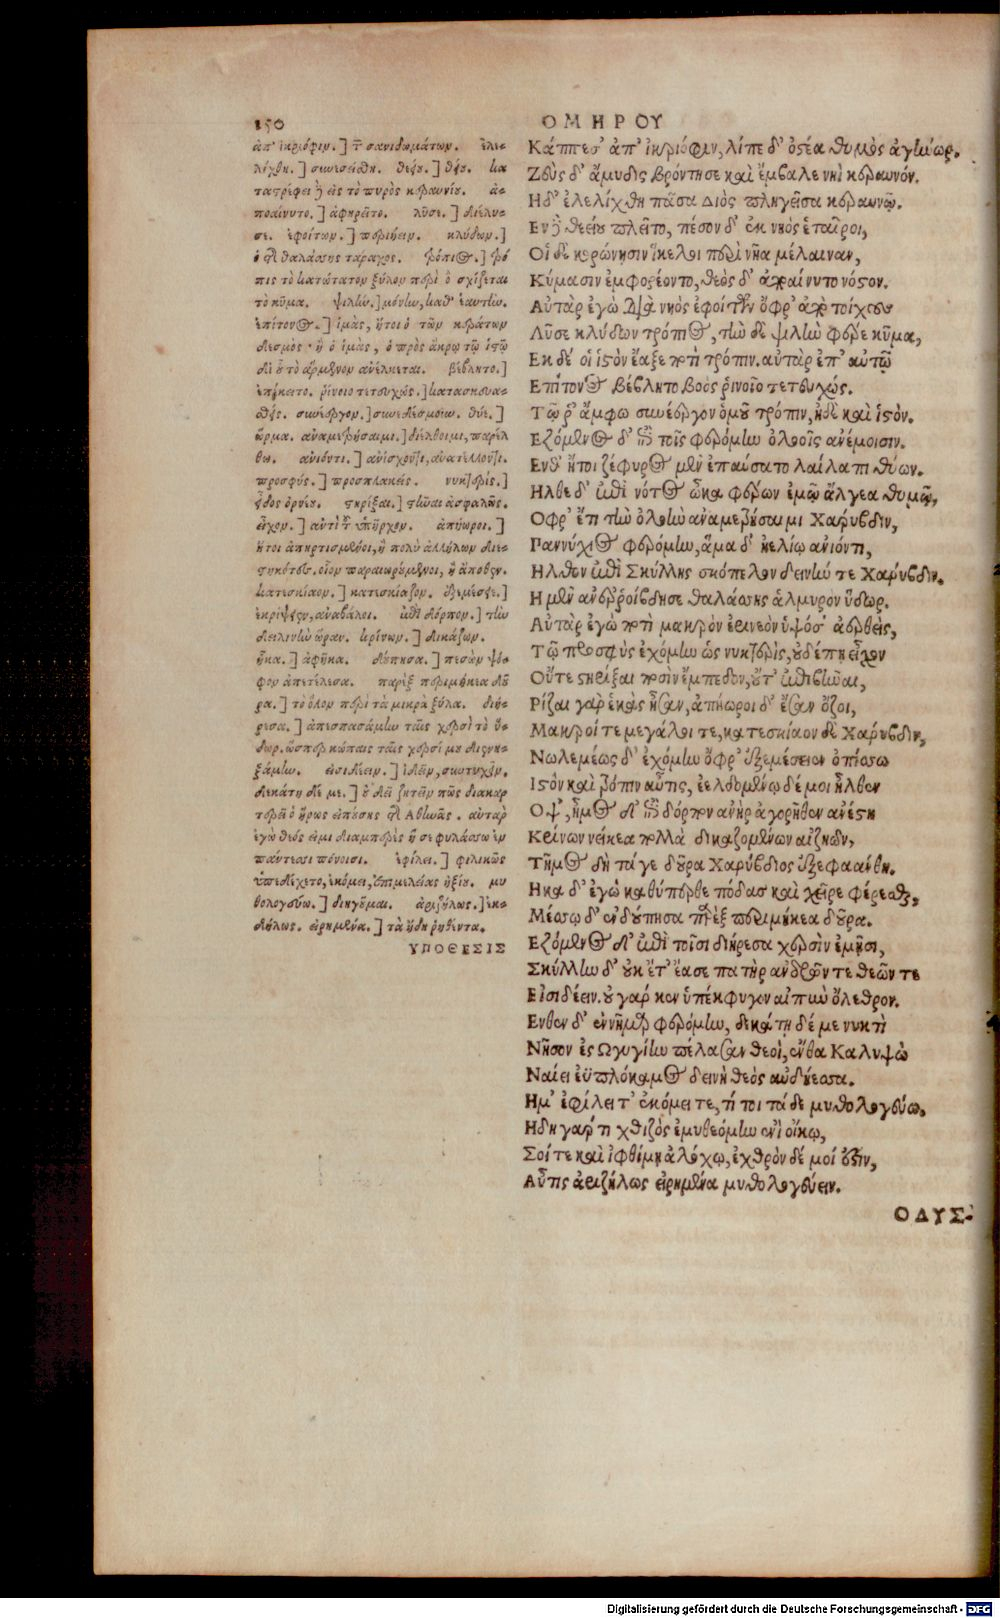 150
ΟΜΗΡΟΥ
ἀπ' ἰκριόφιν.] τ͂ σανιδωμάτων. ἐλε-
λίχθη.] συνεσείσθη. θεείου.] θείου. κα
ταστρέφει ἢ εἰς τὸ πυρὸς κεραυνίου. ἀ-
ποαίνυτο.] ἀφῃρεῖτο. λῦσε.] διέλυ-
σε. ἐφοίτων.] περιῄειν. κλύδων.]
ὁ τῆς θαλάσσης τάραχος. τρόπις.] τρό
πις τὸ κατώτατον ξύλον περὶ ὃ σχίζεται
τὸ κῦμα. ψιλὴν.] μόνην, καθ' ἑαυτὴν.
ἐπίτονος.] ἱμὰς, ἤτοι ὁ τῶν κεράτων
δεσμὸς· ἢ ὁ ἱμὰς, ὁ πρὸς ἄκρῳ τῷ ἱστῷ
δι' οὗ τὸ ἄρμενον ἀνέλκεται. βέβλητο.]
ἐπέκειτο. ῥινοῖο τετευχώς.] κατασκευα-
σθείς. συνέεργον.] συνεδέσμουν. θῦε.]
ὥρμα. ἀναμετρήσαιμι.] διέλθοιμι, παρέλ
θω. ἀνιόντι.] ἀνίσχοντι, ἀνατέλλοντι.
προσφύς.] προσπλακείς. νυκτερίς.]
εἶδος ὀρνέου. στηρίξαι.] στῆναι ἀσφαλῶς.
εἶχον.] ἀντὶ τοῦ ὑπῆρχον. ἀπήωροι.]
ἤτοι ἀπηρτισμένοι, ἢ πολὺ ἀλλήλων διε-
στηκότες. οἷον παραιωρούμενοι, ἢ ἄποθεν.
κατεσκίαον.] κατεσκίαζον. ἐξεμέσειε.]
ἐκρίψειεν, ἀναβάλοι. ἐπὶ δόρπον.] τὴν
δειλινὴν ὥραν. κρίνων.] δικάζων.
ἧκα.] ἀφῆκα. δούπησα.] πεσὼν ψό-
φον ἀπετέλεσα. παρὲξ περιμήκεα δοῦ
ρα.] τὸ ὅλον περὶ τὰ μικρὰ ξύλα. διή-
ρεσα.] ἀπεσπασάμην ταῖς χερσὶ τὸ ὕ-
δωρ. ὥσπερ κώπαις ταῖς χερσί μου διενη-
ξάμην. εἰσιδέειν.] ἰδεῖν, συντυχεῖν.
δεκάτῃ δέ με.] οὐ δεῖ ζητεῖν πῶς διακαρ
τερεῖ ὁ ἥρως εἰπούσης τῆς Ἀθηνᾶς. αὐτὰρ
ἐγὼ θεός εἰμι διαμπερὲς ἥ σε φυλάσσω ἐν
πάντεσσι πόνοισι. ἐφίλει.] φιλικῶς
ὑπεδέχετο, ἐκόμει, ἐπιμελείας ἠξίου. μυ
θολογεύω.] διηγοῦμαι. ἀριζήλως.] ἐκ-
δήλως. εἰρημένα.] τὰ ἤδη ῥηθέντα.
ΥΠΟΘΕΣΙΣ
Κάππεσ' ἀπ' ἰκριόφιν, λίπε δ' ὀστέα θυμὸς ἀγήνωρ.
Ζεὺς δ' ἄμυδις βρόντησε καὶ ἔμβαλε νηὶ κεραυνόν.
Ηδ' ἐλελίχθη πᾶσα Διὸς πληγεῖσα κεραυνῷ.
Εν δὲ θεείου πλεῖτο, πέσον δ' ἐκ νηὸς ἑταῖροι,
Οἱ δὲ κορώνῃσιν ἴκελοι περὶ νῆα μέλαιναν,
Κύμασιν ἐμφορέοντο, θεὸς δ' ἀποαίνυτο νόστον.
Αὐτὰρ ἐγὼ διὰ νηὸς ἐφοίτων ὄφρ' ἀπὸ τοίχους
Λῦσε κλύδων τρόπιος, τὴν δὲ ψιλὴν φέρε κῦμα,
Εκ δέ οἱ ἱστὸν ἔαξε ποτὶ τρόπιν. αὐτὰρ ἐπ' αὐτῷ
Επίτονος βέβλητο βοὸς ῥινοῖο τετευχώς.
Τῷ ῥ' ἄμφω συνέεργον ὁμοῦ τρόπιν, ἠδὲ καὶ ἱστὸν.
Εζόμενος δ' ἐπὶ τοῖς φερόμην ὀλοοῖς ἀνέμοισιν.
Ενθ' ἤτοι ζέφυρος μὲν ἐπαύσατο λαίλαπι θύων.
Ηλθε δ' ἐπὶ νότος ὦκα φέρων ἐμῷ ἄλγεα θυμῷ,
Οφρ' ἔτι τὴν ὀλοὴν ἀναμετρήσαιμι Χαρύβδιν,
Παννύχιος φερόμην, ἅμα δ' ἠελίῳ ἀνιόντι,
Ηλθον ἐπὶ Σκύλλης σκόπελον δεινήν τε Χαρύβδιν.
Η μὲν ἀνερροίβδησε θαλάσσης ἁλμυρὸν ὕδωρ.
Αὐτὰρ ἐγὼ ποτὶ μακρὸν ἐρινεὸν ὑψόσ' ἀερθεὶς,
Τῷ προσφὺς ἐχόμην ὡς νυκτερὶς, οὐδέ πῃ εἶχον
Οὔτε στηρίξαι ποσὶν ἔμπεδον, οὔτ' ἐπιβῆναι,
Ρίζαι γὰρ ἑκὰς ἦσαν, ἀπήωροι δ' ἔσαν ὄζοι,
Μακροί τε μεγάλοι τε, κατεσκίαον δὲ Χαρύβδιν,
Νωλεμέως δ' ἐχόμην ὄφρ' ἐξεμέσειεν ὀπίσσω
Ιστὸν καὶ τρόπιν αὖτις, ἐελδομένῳ δέ μοι ἦλθεν
Οψ', ἦμος δ' ἐπὶ δόρπον ἀνὴρ ἀγορῆθεν ἀνέστη
Κρίνων νείκεα πολλὰ δικαζομένων αἰζηῶν,
Τῆμος δὴ τά γε δοῦρα Χαρύβδιος ἐξεφαάνθη.
Ηκα δ' ἐγὼ καθύπερθε πόδας καὶ χεῖρε φέρεσθαι,
Μέσσῳ δ' ἐνδούπησα παρὲξ περιμήκεα δοῦρα.
Εζόμενος δ' ἐπὶ τοῖσι διήρεσα χερσὶν ἐμῇσι,
Σκύλλην δ' οὐκ ἔτ' ἔασε πατὴρ ἀνδρῶν τε θεῶν τε
Εἰσιδέειν. οὐ γάρ κεν ὑπέκφυγον αἰπὺν ὄλεθρον.
Ενθεν δ' ἐννῆμαρ φερόμην, δεκάτῃ δέ με νυκτὶ
Νῆσον ἐς Ωγυγίην πέλασαν θεοὶ, ἔνθα Καλυψὼ
Ναίει ἐϋπλόκαμος δεινὴ θεὸς αὐδήεσσα.
Ημ' ἐφίλει τ' ἐκόμει τε, τί τοι τάδε μυθολογεύω,
Ηδη γάρ τι χθιζὸς ἐμυθεόμην ἐνὶ οἴκῳ,
Σοί τε καὶ ἰφθίμῃ ἀλόχῳ, ἐχθρὸν δέ μοί ἐστιν,
Αὖτις ἀριζήλως εἰρημένα μυθολογεύειν.
ΟΔΥΣ-
Digitalisierung gefördert durch die Deutsche Forschungsgemeinschaft - DFG